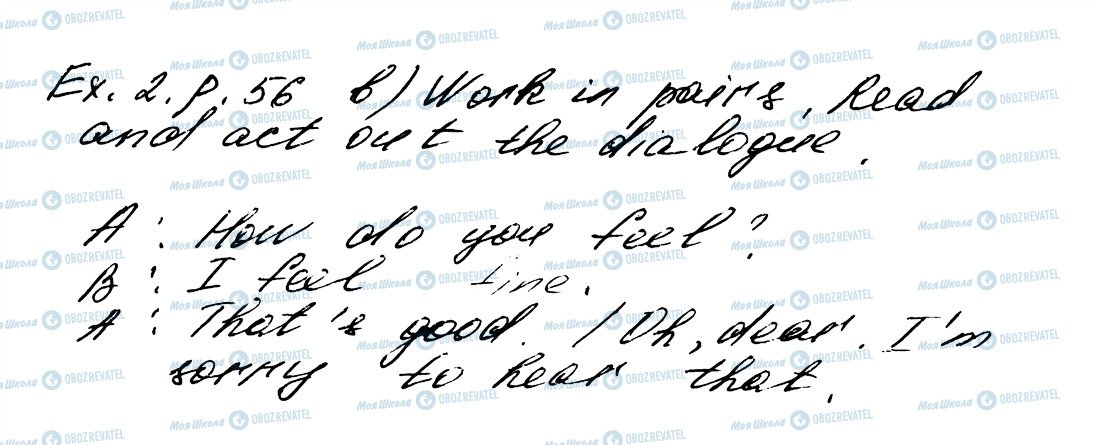 Ex. 2. p. 56 b) Work in pairs. Read
and act out the dialogue.
A: How do you feel?
B: I feel fine.
A: That's good. / Oh, dear. I'm
sorry to hear that.